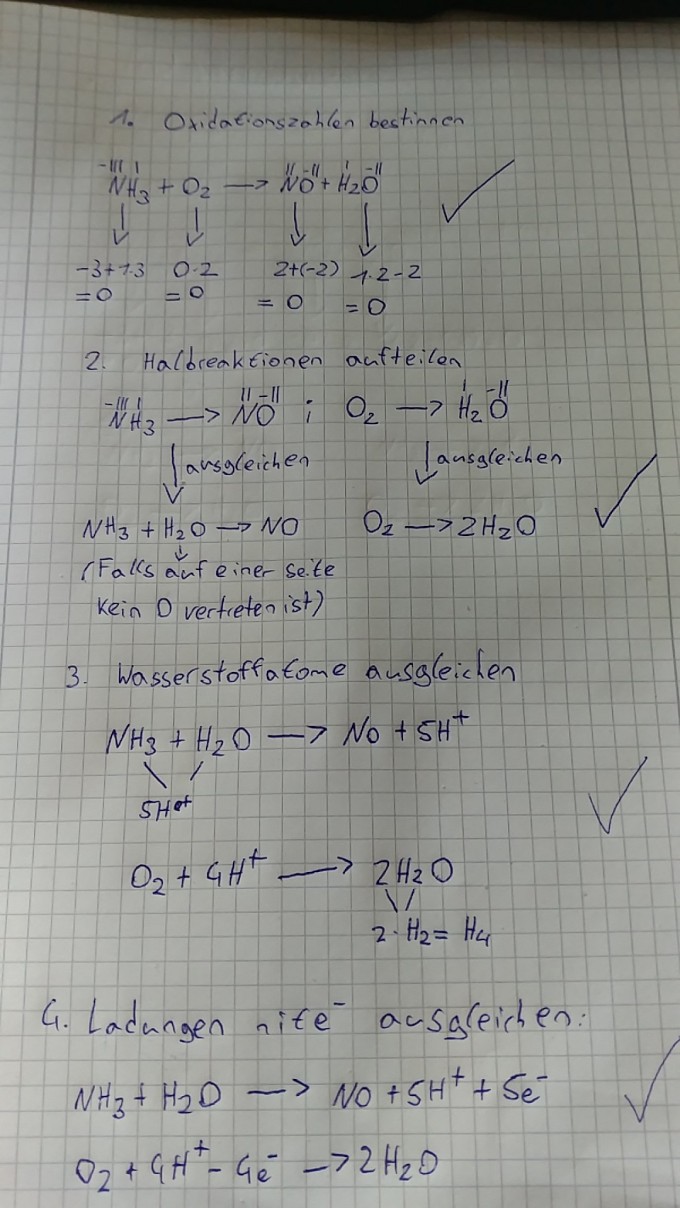 1. Oxidationszahlen bestimmen
-III I II -II I -II
NH3 + O2 → NO + H2O
-3+1·3 0·2 2+(-2) 1·2-2
=0 =0 =0 =0
2. Halbreaktionen aufteilen
-III I II -II I -II
NH3 → NO ; O2 → H2O
ausgleichen ausgleichen
NH3 + H2O → NO O2 → 2H2O
(Falls auf einer seite
kein O vertreten ist)
3. Wasserstoffatome ausgleichen
NH3 + H2O → NO + 5H+
5H+
O2 + 4H+ → 2H2O
2·H2 = H4
4. Ladungen mit e- ausgleichen:
NH3 + H2O → NO + 5H+ + 5e-
O2 + 4H+ - 4e- → 2H2O